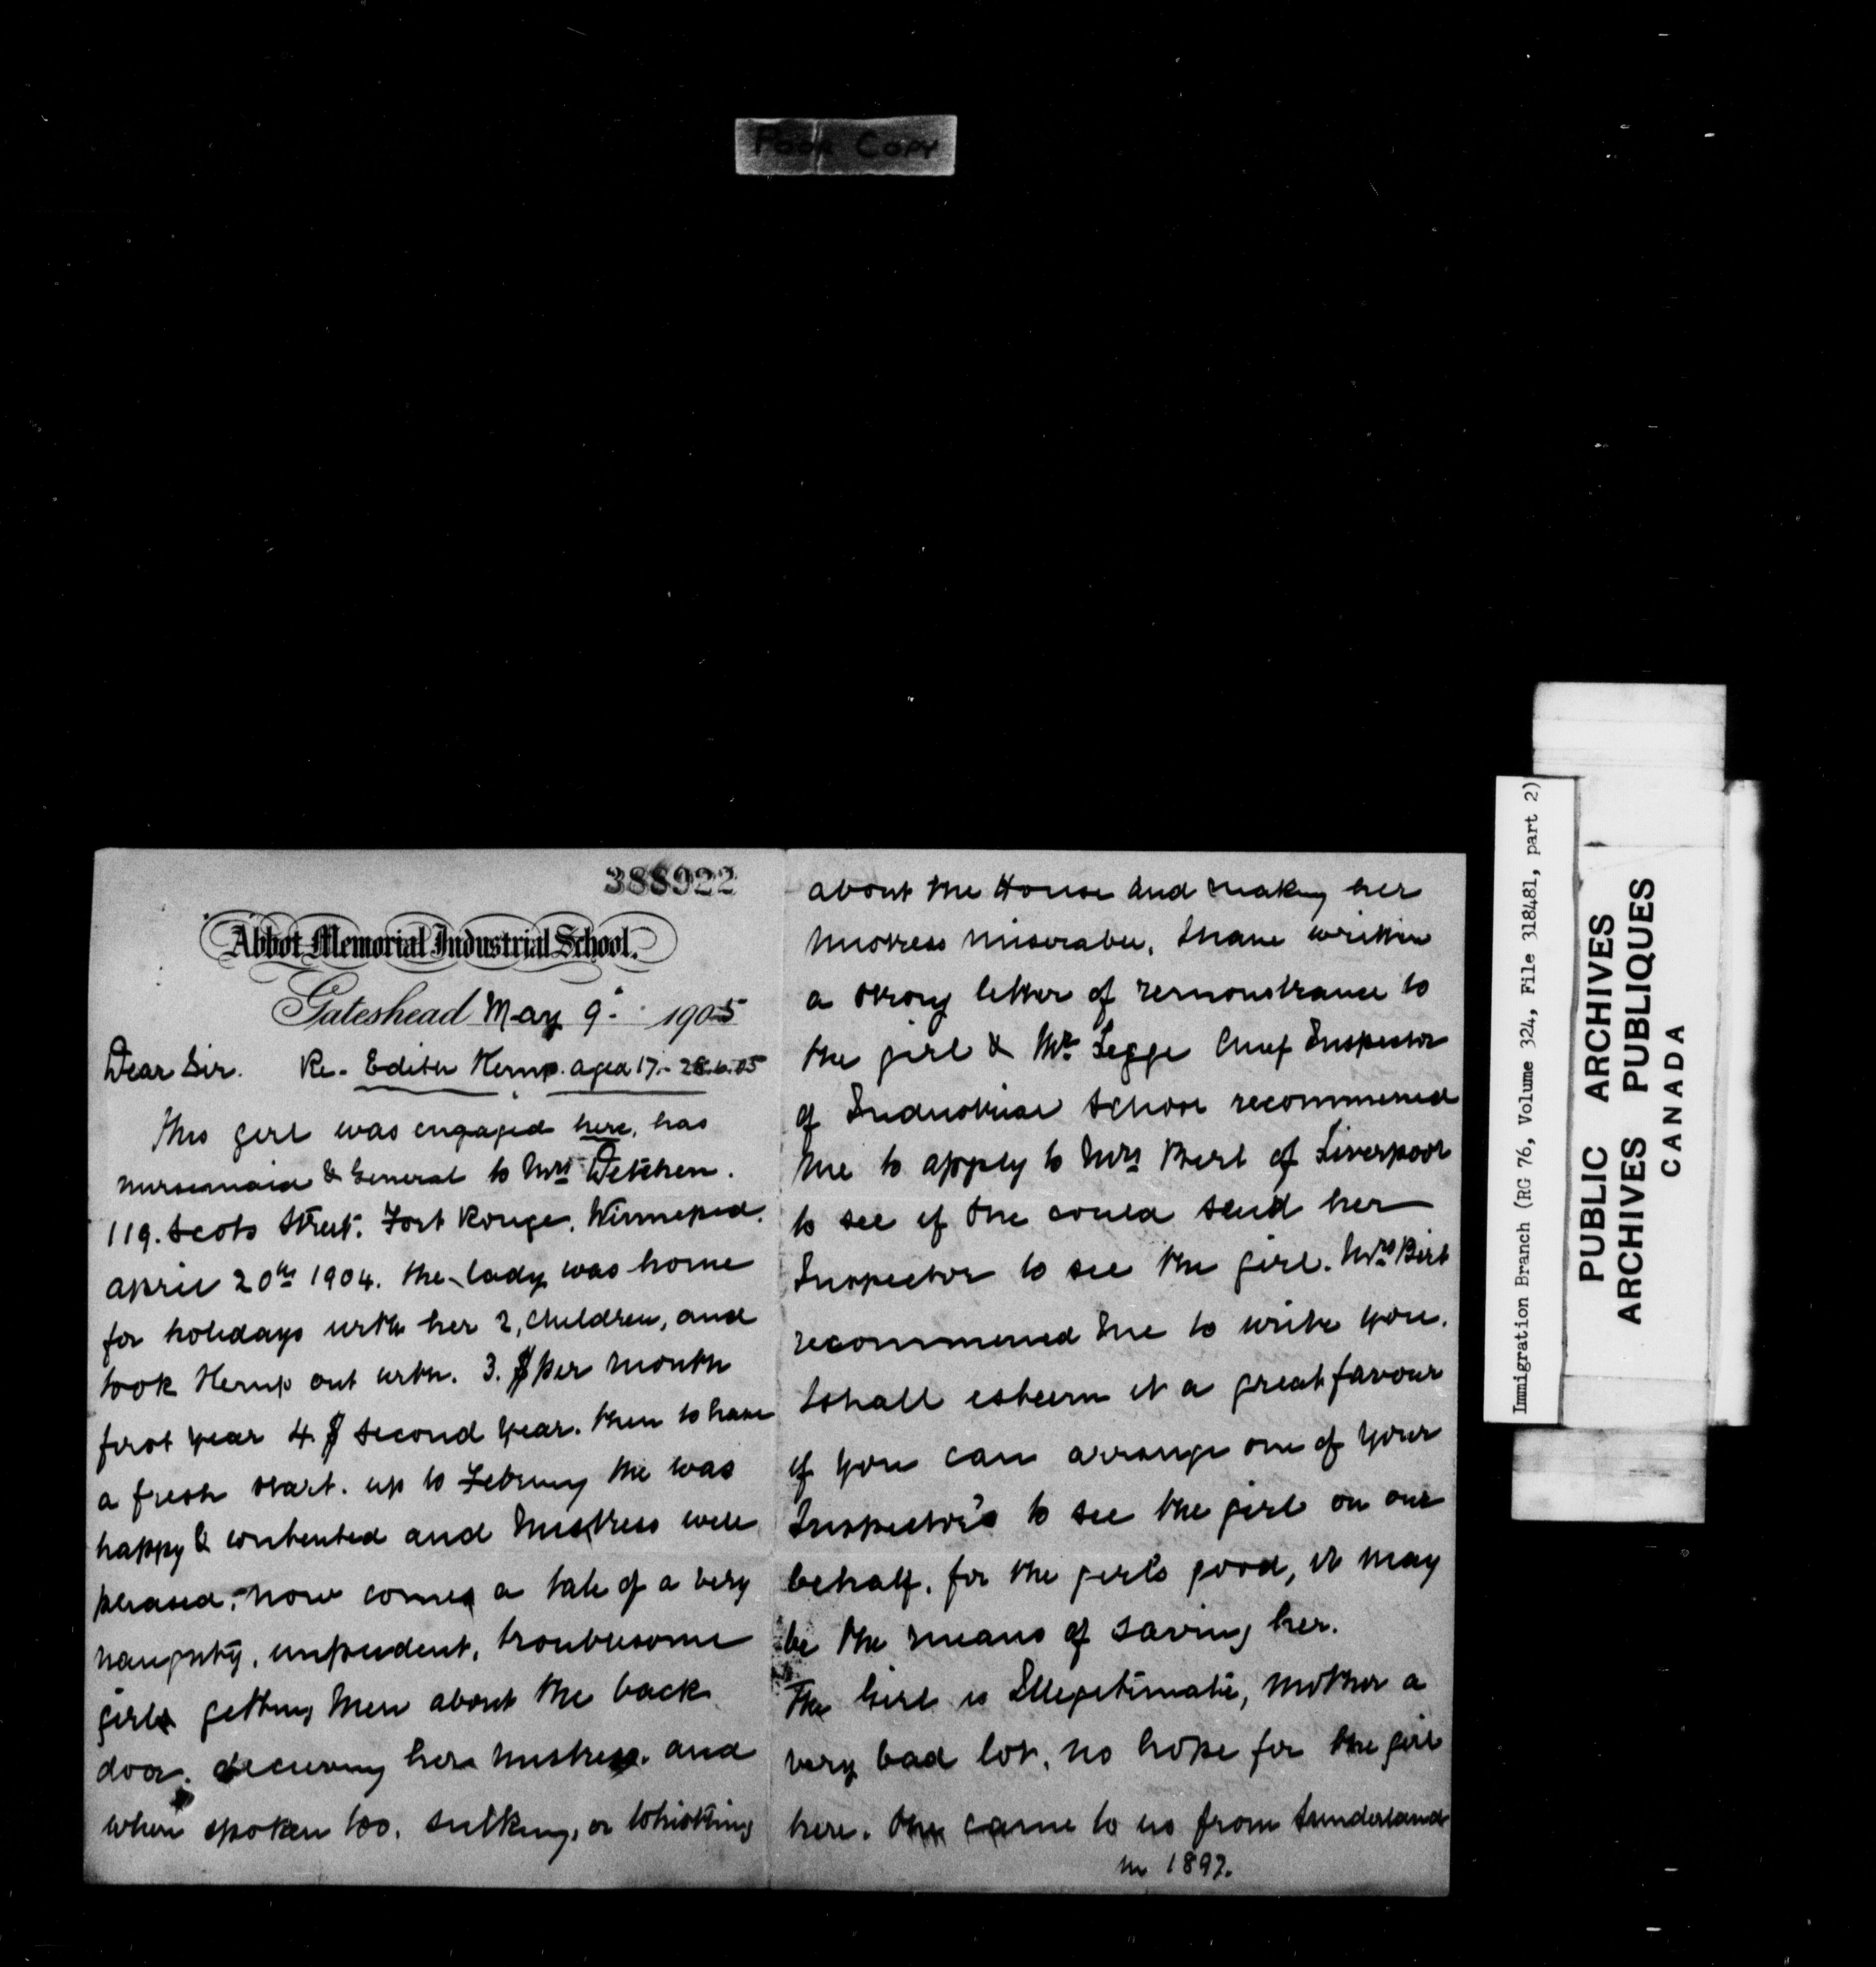 Poor Copy
388922
Abbot Memorial Industrial School.
Gateshead May 9. 1905
Dear Sir. Re. Edith Kemp. aged 17. - 28.6.05
This girl was engaged here, has
nursemaid & General to Mrs
119. Scots Street. Fort Rouge. Winneped.
April 20th 1904. the lady was home
for holidays with her 2, children, and
took Kemp out with. 3. $ per month
first year 4 $ second year. then to have
a fresh start. up to Februay she was
happy & contented and Mistress well
pleased. now comes a tale of a very
naughty, impudent, troublesome
girl getting Men about the back
door. deceiving her Mistress. and
when spoken too. sulking, or Whistling
about the House and making her
Mistress miserable. I have written
a strong letter of remonstrance to
the girl & Mr Legge Chief Inspector
of Industrial School recommened
me to apply to Mrs Birt of Liverpool
to see if she could send her
Inspector to see the girl. Mrs Birt
recommened me to write you.
I shall esteem it a great favour
if you can arrange one of your
Inspector's to see the girl on our
behalf. for the girls good, it may
be the means of saving her.
The Girl is Illegitimate, Mother a
very bad lot, no hope for the girl
here. She came to us from Sunderland
in 1897.
Immigration Branch (RG 76, Volume 324, File 318481, part 2)
PUBLIC ARCHIVES
ARCHIVES PUBLIQUES
CANADA